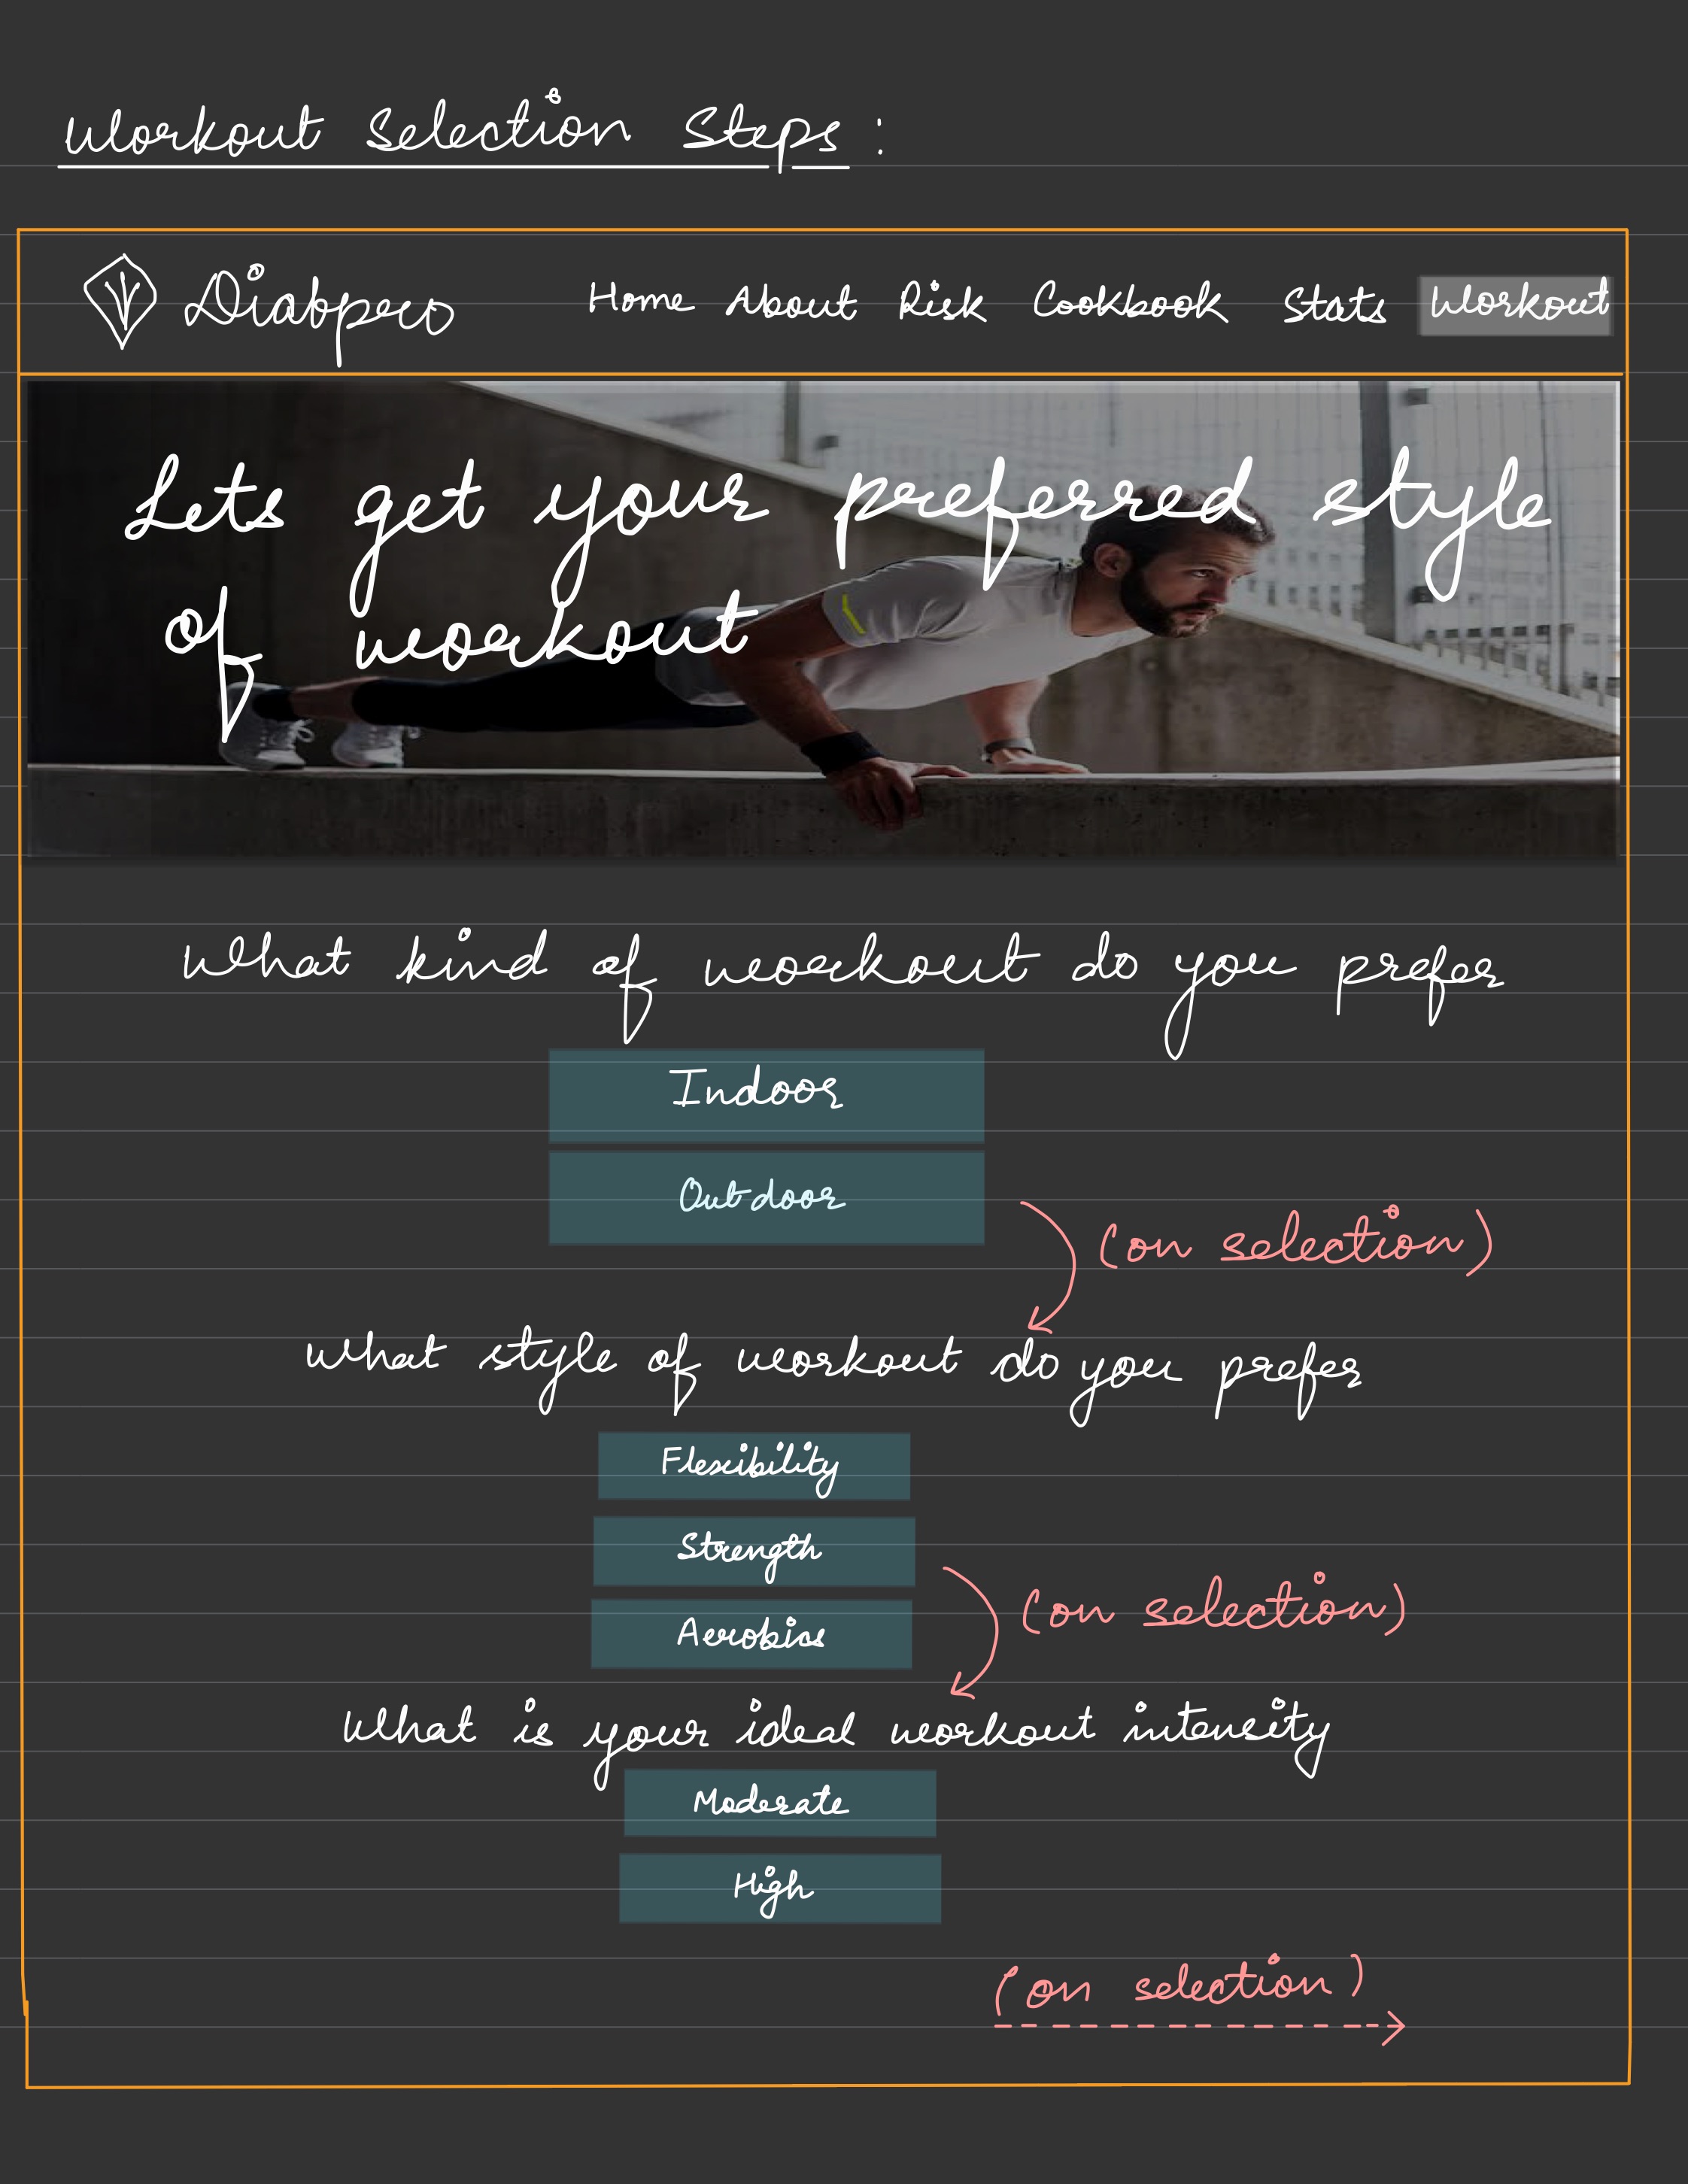 Workout Selection Steps :
Diabpro
Home About Risk Cookbook Stats Workout
Lets get your preferred style
of workout
What kind of workout do you prefer
Indoor
Outdoor
(on selection)
What style of workout do you prefer
Flexibility
Strength
(on selection)
Aerobics
What is your ideal workout intensity
Moderate
High
(on selection)